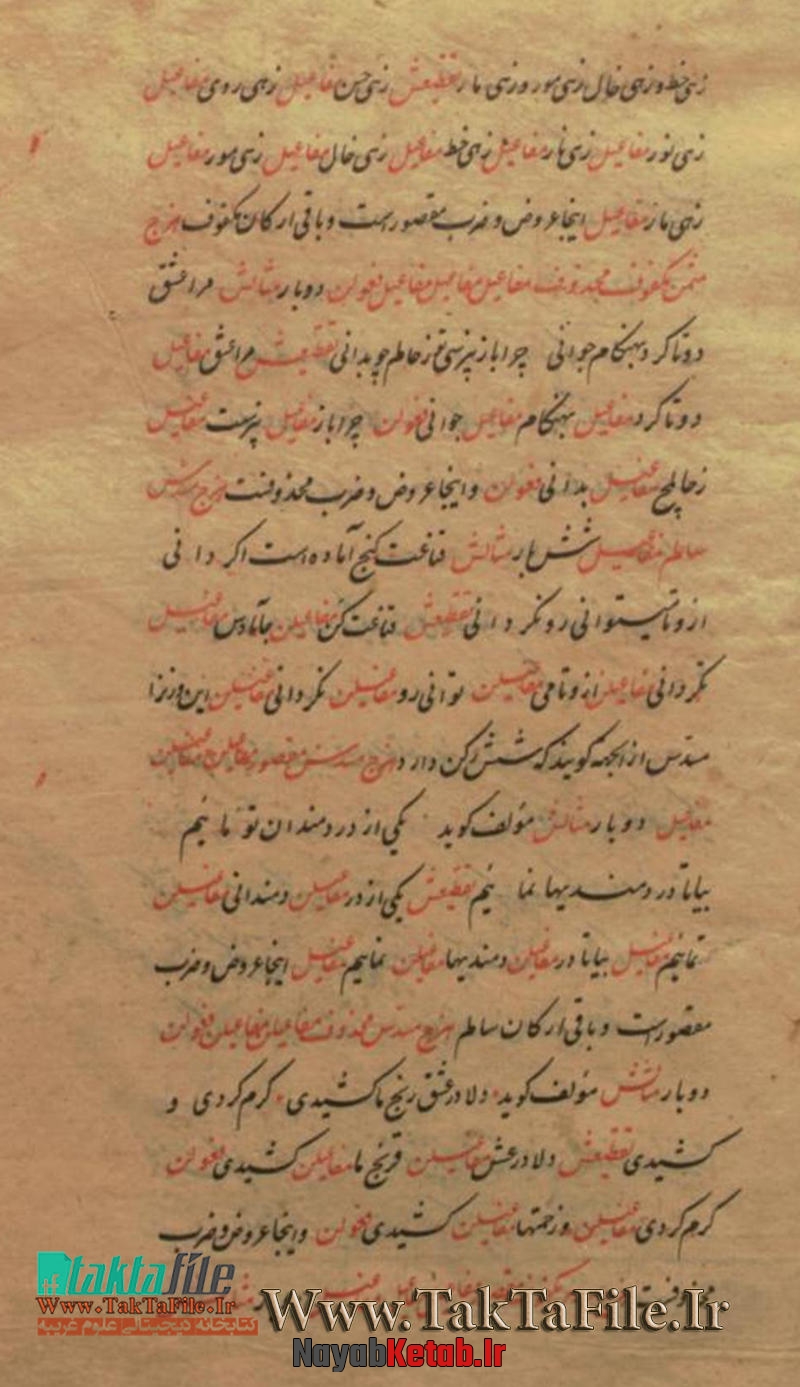 زهی خط و زهی خال زهی مور و زهی مار تقطیعش زهی حسن مفاعیل زهی روی مفاعیل
زهی نور مفاعیل زهی نار مفاعیل زهی خط مفاعیل زهی خال مفاعیل زهی مور مفاعیل
زهی مار مفاعیل اینجا عروض و ضرب مقصور است و باقی ارکان مکفوف هزج
مثمن مکفوف محذوف مفاعیل مفاعیل مفاعیل فعولن دو بار مثالش مرا عشق
دوتا کرد بهنگام جوانی چرا باز نپرسی تو ز حالم چو بدانی تقطیعش مرا عشق مفاعیل
دوتا کرد مفاعیل بهنگام مفاعیل جوانی فعولن چرا باز مفاعیل نپرست مفاعیل
مفاعیل بدانی فعولن و اینجا عروض و ضرب محذوفست هزج مسدس
سالم مفاعیلن شش بار مثالش قناعت کنج آماده است اگر دانی
ازو تا میتوانی رو نگردانی تقطیعش قناعت کن مفاعیلن جآمادس مفاعیلن
نگردانی مفاعیلن ازو تا می مفاعیلن توانی رو مفاعیلن نگردانی مفاعیلن این وزنرا
مسدس از انجهة کویند که شش رکن دارد هزج مسدس مقصور مفاعیلن مفاعیلن
مفاعیل دو بار مثالش مؤلف کوید یکی از دردمندان تو مائیم
بیا تا دردمندیها نمائیم تقطیعش یکی از در مفاعیلن دمندانی مفاعیلن
تمائیم مفاعیل بیا تا در مفاعیلن دمندیها مفاعیلن نمائیم مفاعیل اینجا عروض و ضرب
مقصور است و باقی ارکان سالم هزج مسدس محذوف مفاعیلن مفاعیلن فعولن
دو بار مثالش مؤلف کوید دلا در عشق رنج ما کشیدی کرم کردی و
کشیدی تقطیعش دلا در عش مفاعیلن قرنج ما مفاعیلن کشیدی فعولن
کرم کردی مفاعیلن و زحمتها مفاعیلن کشیدی فعولن و اینجا عروض و ضرب
محذوفست
taktafile
Www.TakTaFile.Ir
کتابخانه دیجیتالی علوم غریبه
Www.TakTaFile.Ir
NayabKetab.Ir